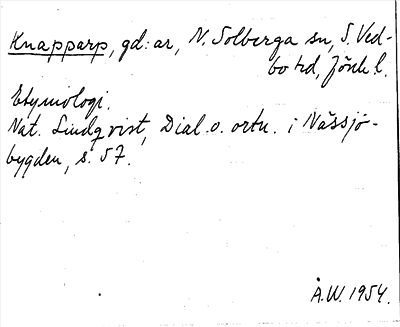 Knapparp, gd:ar, N. Solberga sn, S. Ved-
bo hd, Jönk l.
Etymologi.
Nat. Lindqvist, Dial. o. ortn. i Nässjö-
bygden, s. 57.
Å.W. 1954.